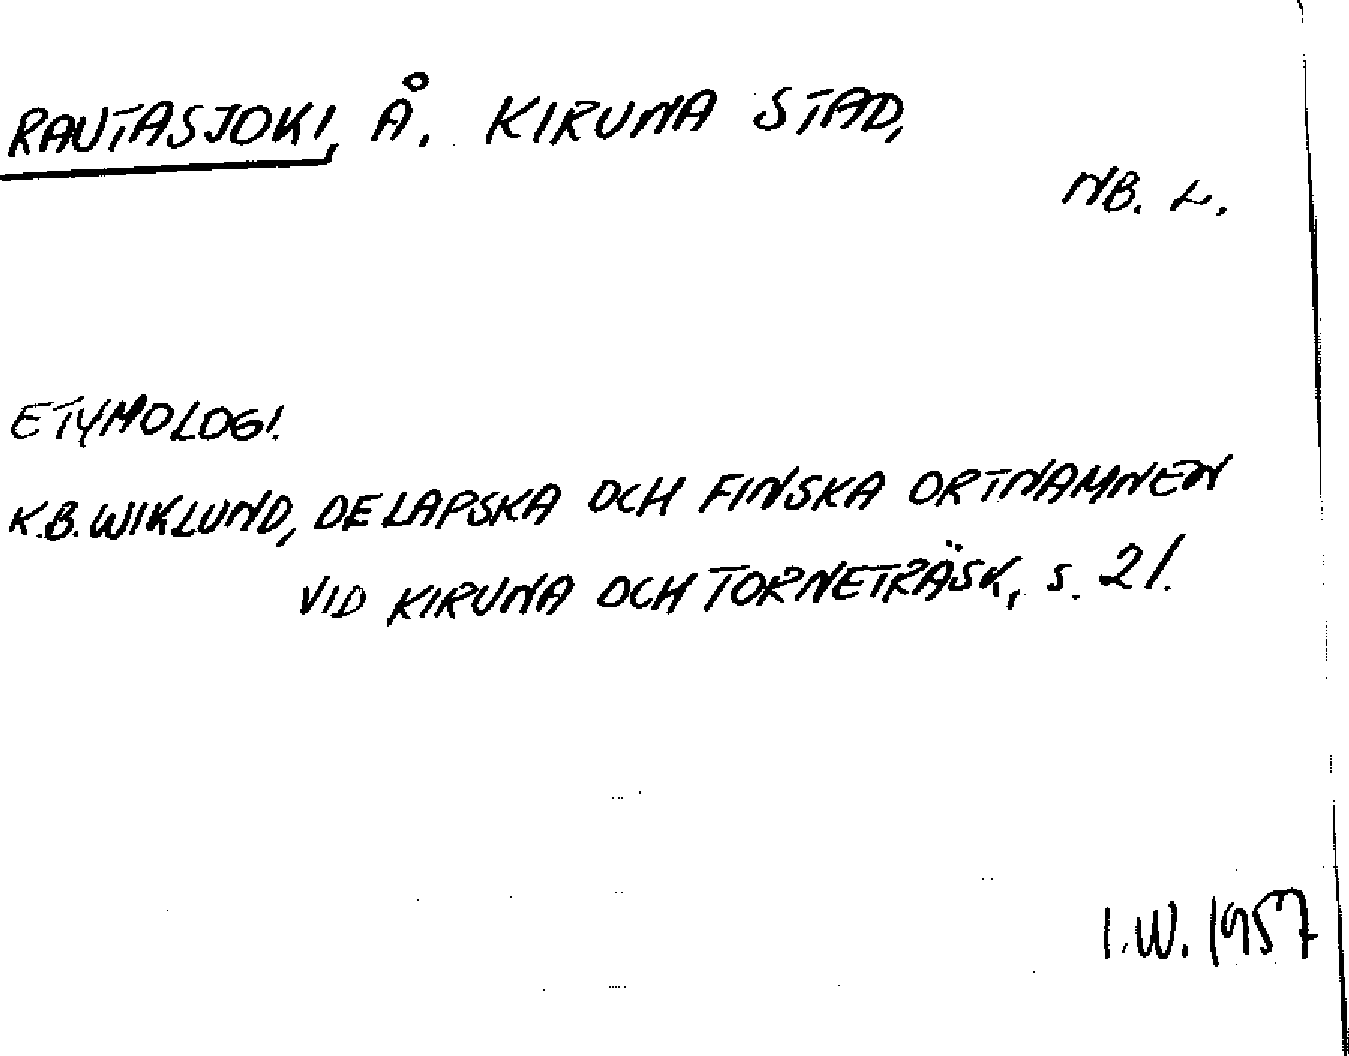 RAUTASJOKI, Å. KIRUNA STAD,
NB. L.
ETYMOLOGI.
K.B. WIKLUND, DE LAPSKA OCH FINSKA ORTNAMNEN
VID KIRUNA OCH TORNETRÄSK, s. 21.
I.W. 1957